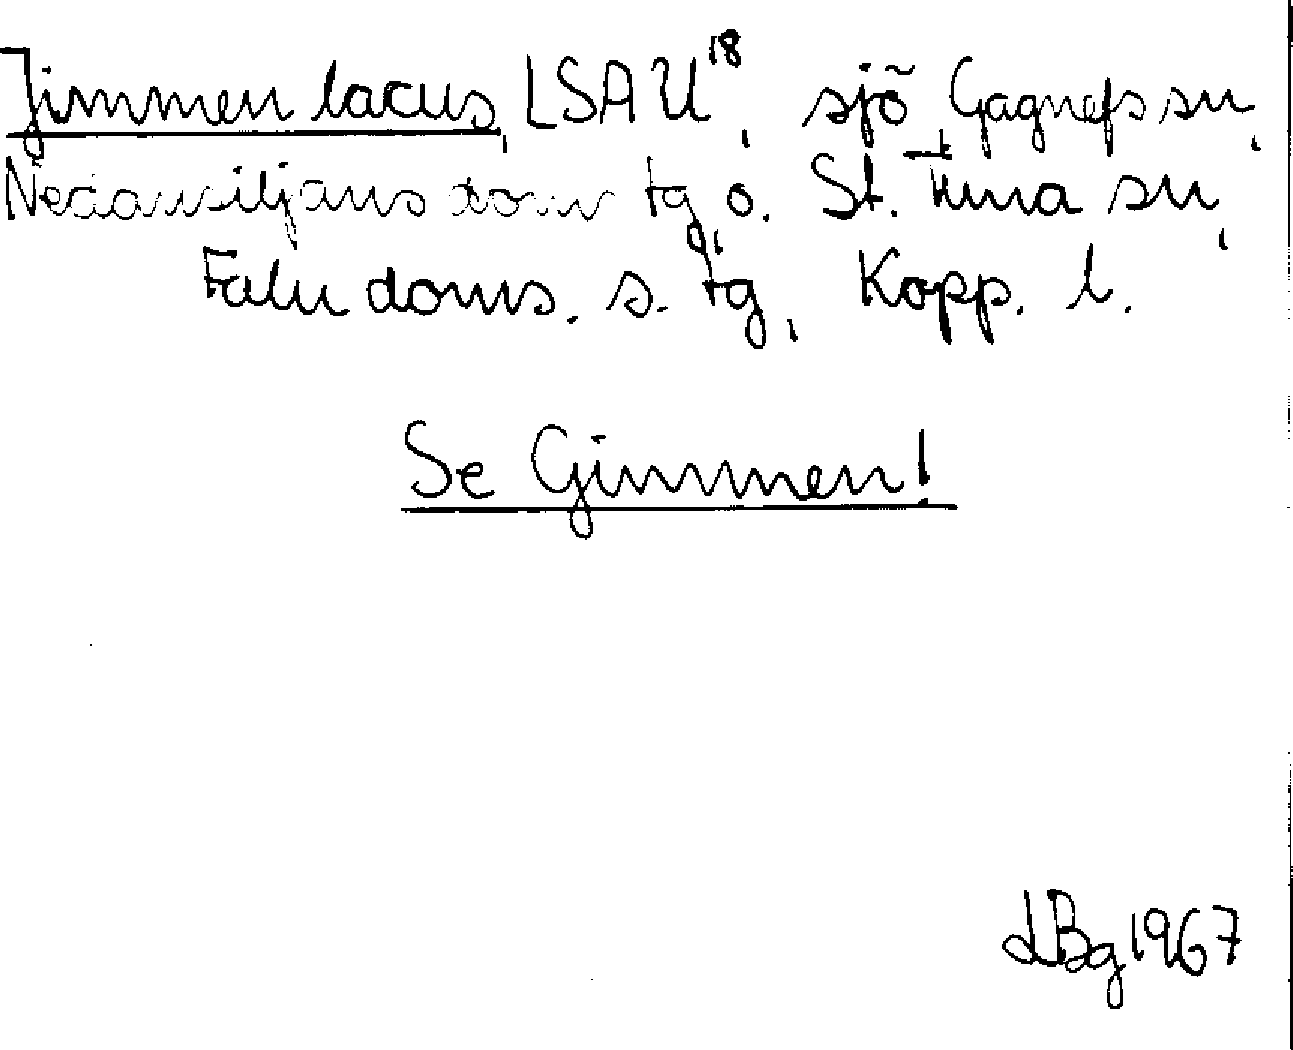 Jimmen lacus, LSA U18, sjö Gagnefs sn,
Nedansiljans doms tg, o. St. Tuna sn,
Falu doms. s. tg, Kopp. l.
Se Gimmen!
LBg 1967